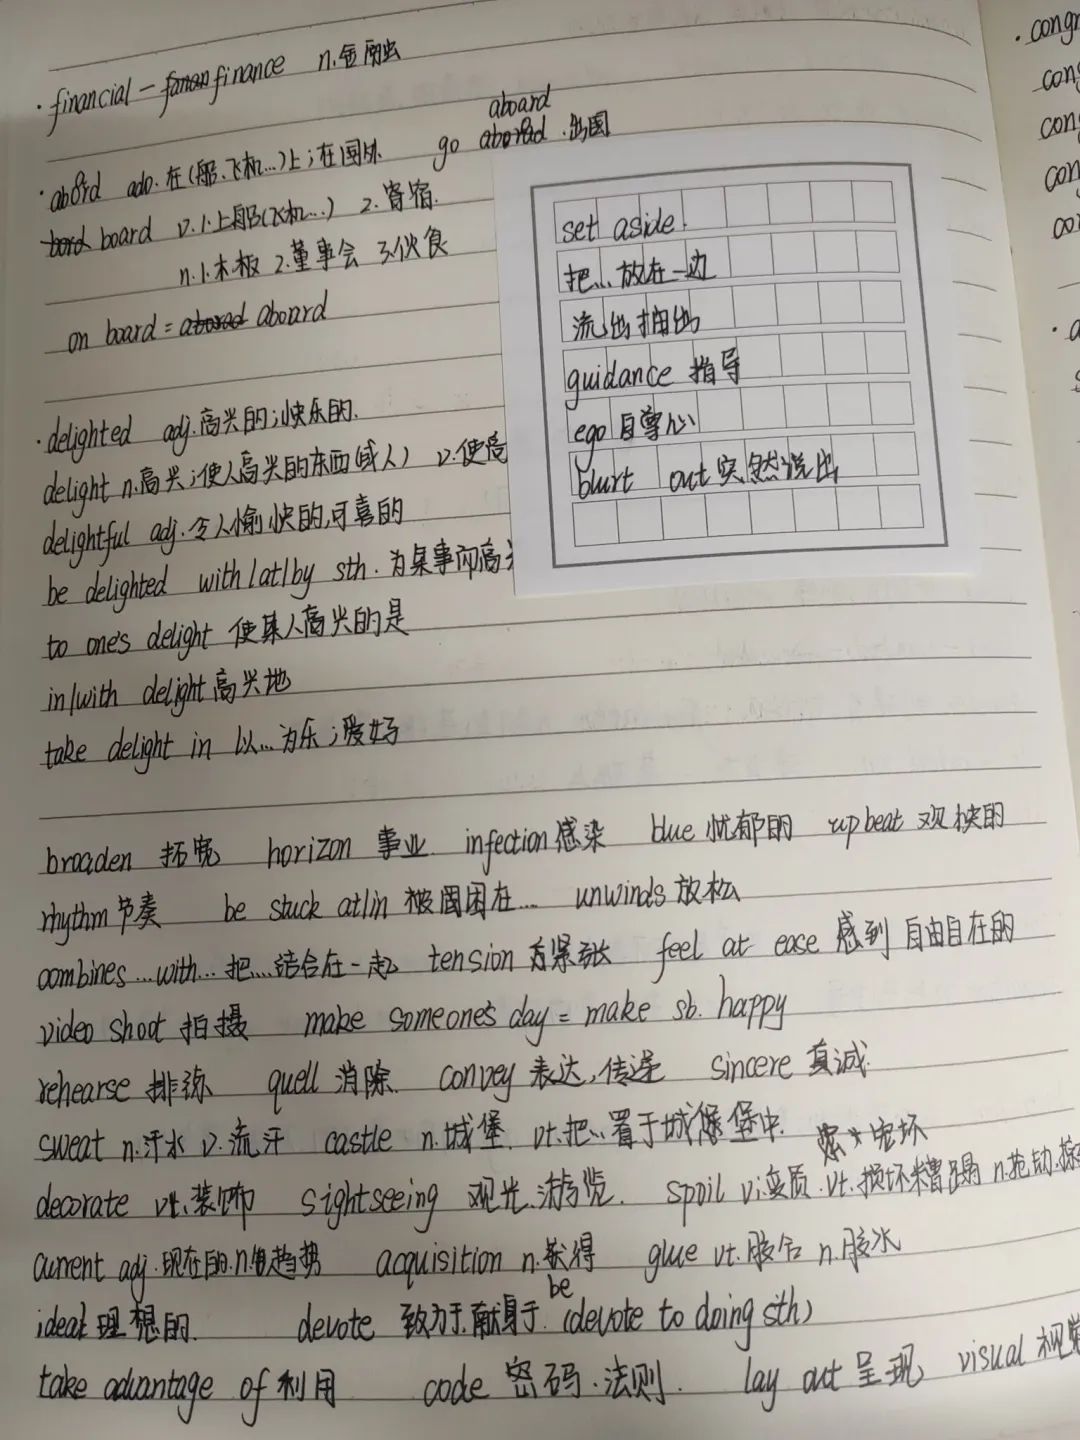 · financial - finance n.金融
aboard
· abord adv.在(船、飞机...)上;在国外 go aborad.出国
board v.1.上船(飞机...) 2.寄宿.
n.1.木板 2.董事会 3.伙食
on board = aboard
· delighted adj.高兴的;快乐的.
delight n.高兴;使人高兴的东西(或人) v.使高
delightful adj.令人愉快的,可喜的
be delighted with/at/by sth.为某事而高兴
to one's delight 使某人高兴的是
in/with delight 高兴地
take delight in 以...为乐;爱好
set aside.
把...放在一边
流出抽出
guidance 指导
ego 自尊心
blurt out 突然说出
broaden 拓宽 horizon 事业 infection 感染 blue 忧郁的 upbeat 观快的
rhythm 节奏 be stuck at/in 被困在... unwinds 放松
combines...with...把...结合在一起 tension 紧张 feel at ease 感到自由自在的
video shoot 拍摄 make someone's day = make sb. happy
rehearse 排练 quell 消除 convey 表达,传递 sincere 真诚
sweat n.汗水 v.流汗 castle n.城堡. vt.把...置于城堡中.
宠坏
decorate vt.装饰 sightseeing 观光.游览. spoil vi.变质.vt.损坏糟蹋 n.
current adj.现在的.n.趋势 acquisition n.获得 glue vt.胶合 n.胶水
be
ideal 理想的. devote 致力于.献身于 (devote to doing sth)
take advantage of 利用 code 密码.法则. lay out 呈现 visual 视觉
· congr